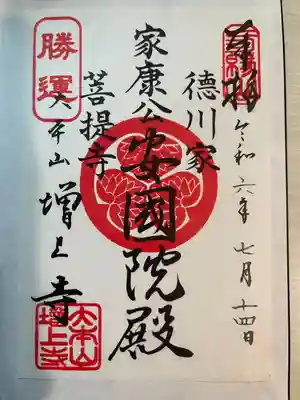 奉拝
令和六年七月十四日
徳川家
家康公
安國院殿
菩提寺
勝運
大本山
増上寺
大本山
増上寺